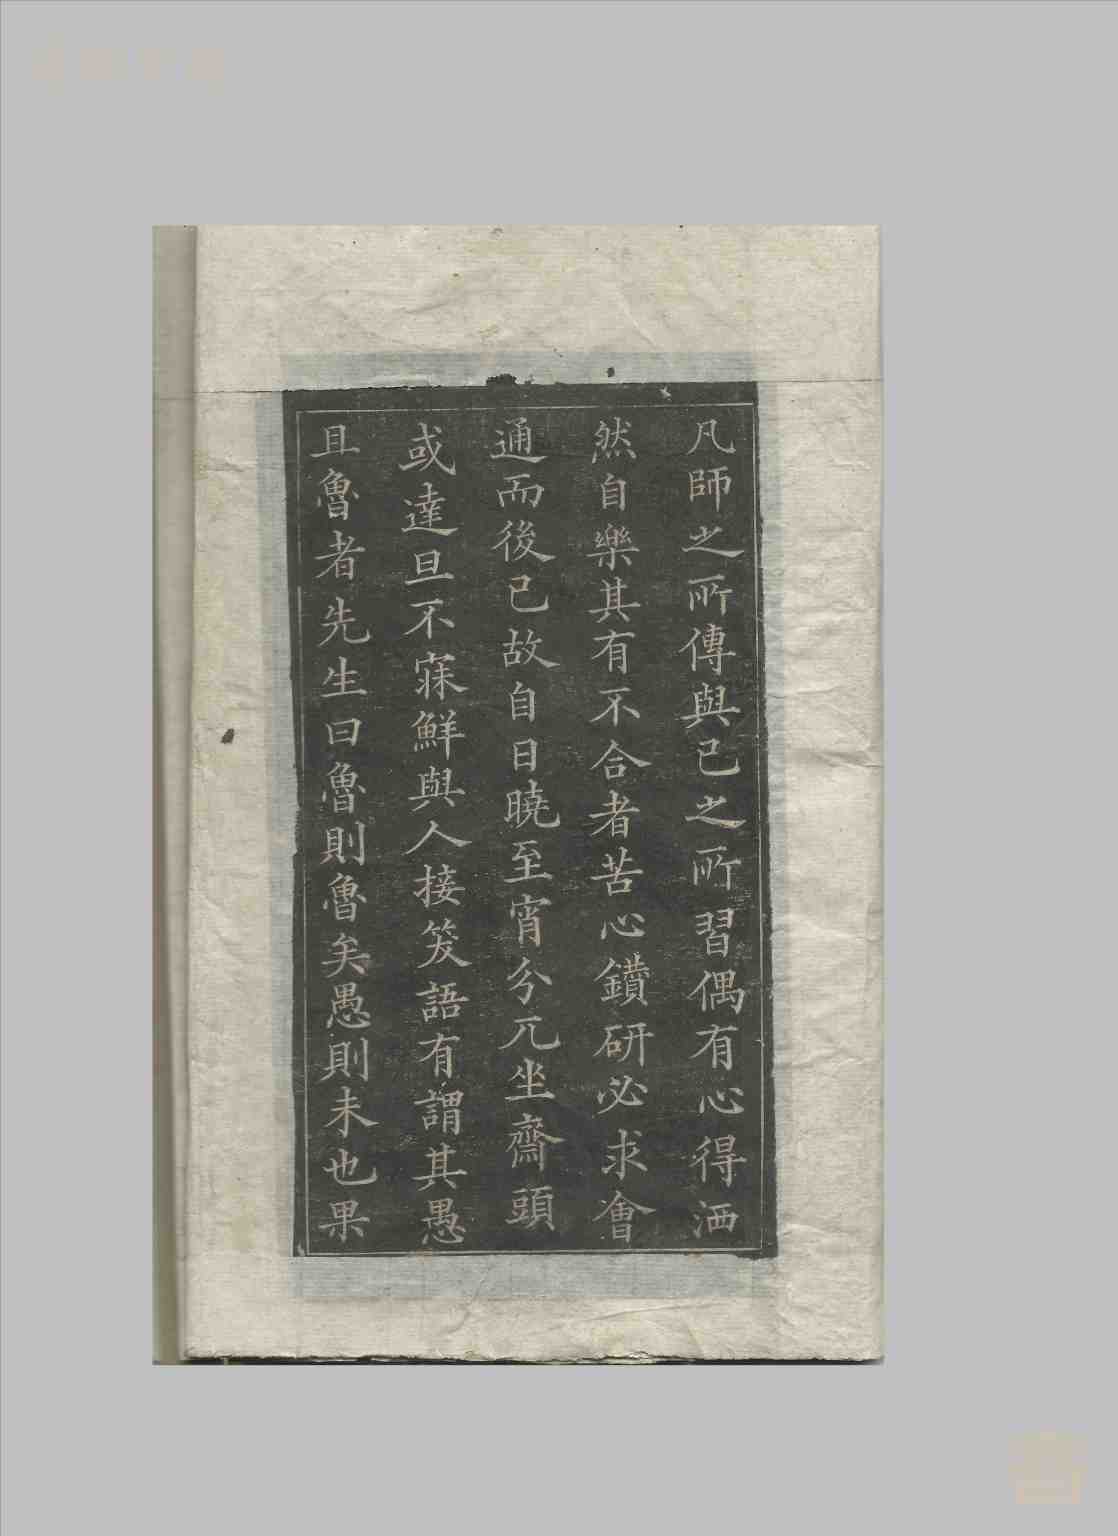 凡師之所傳與己之所習偶有心得洒
然自樂其有不合者苦心鑽研必求會
通而後已故自日曉至宵分兀坐齋頭
或達旦不寐鮮與人接笑語有謂其愚
且魯者先生曰魯則魯矣愚則未也果